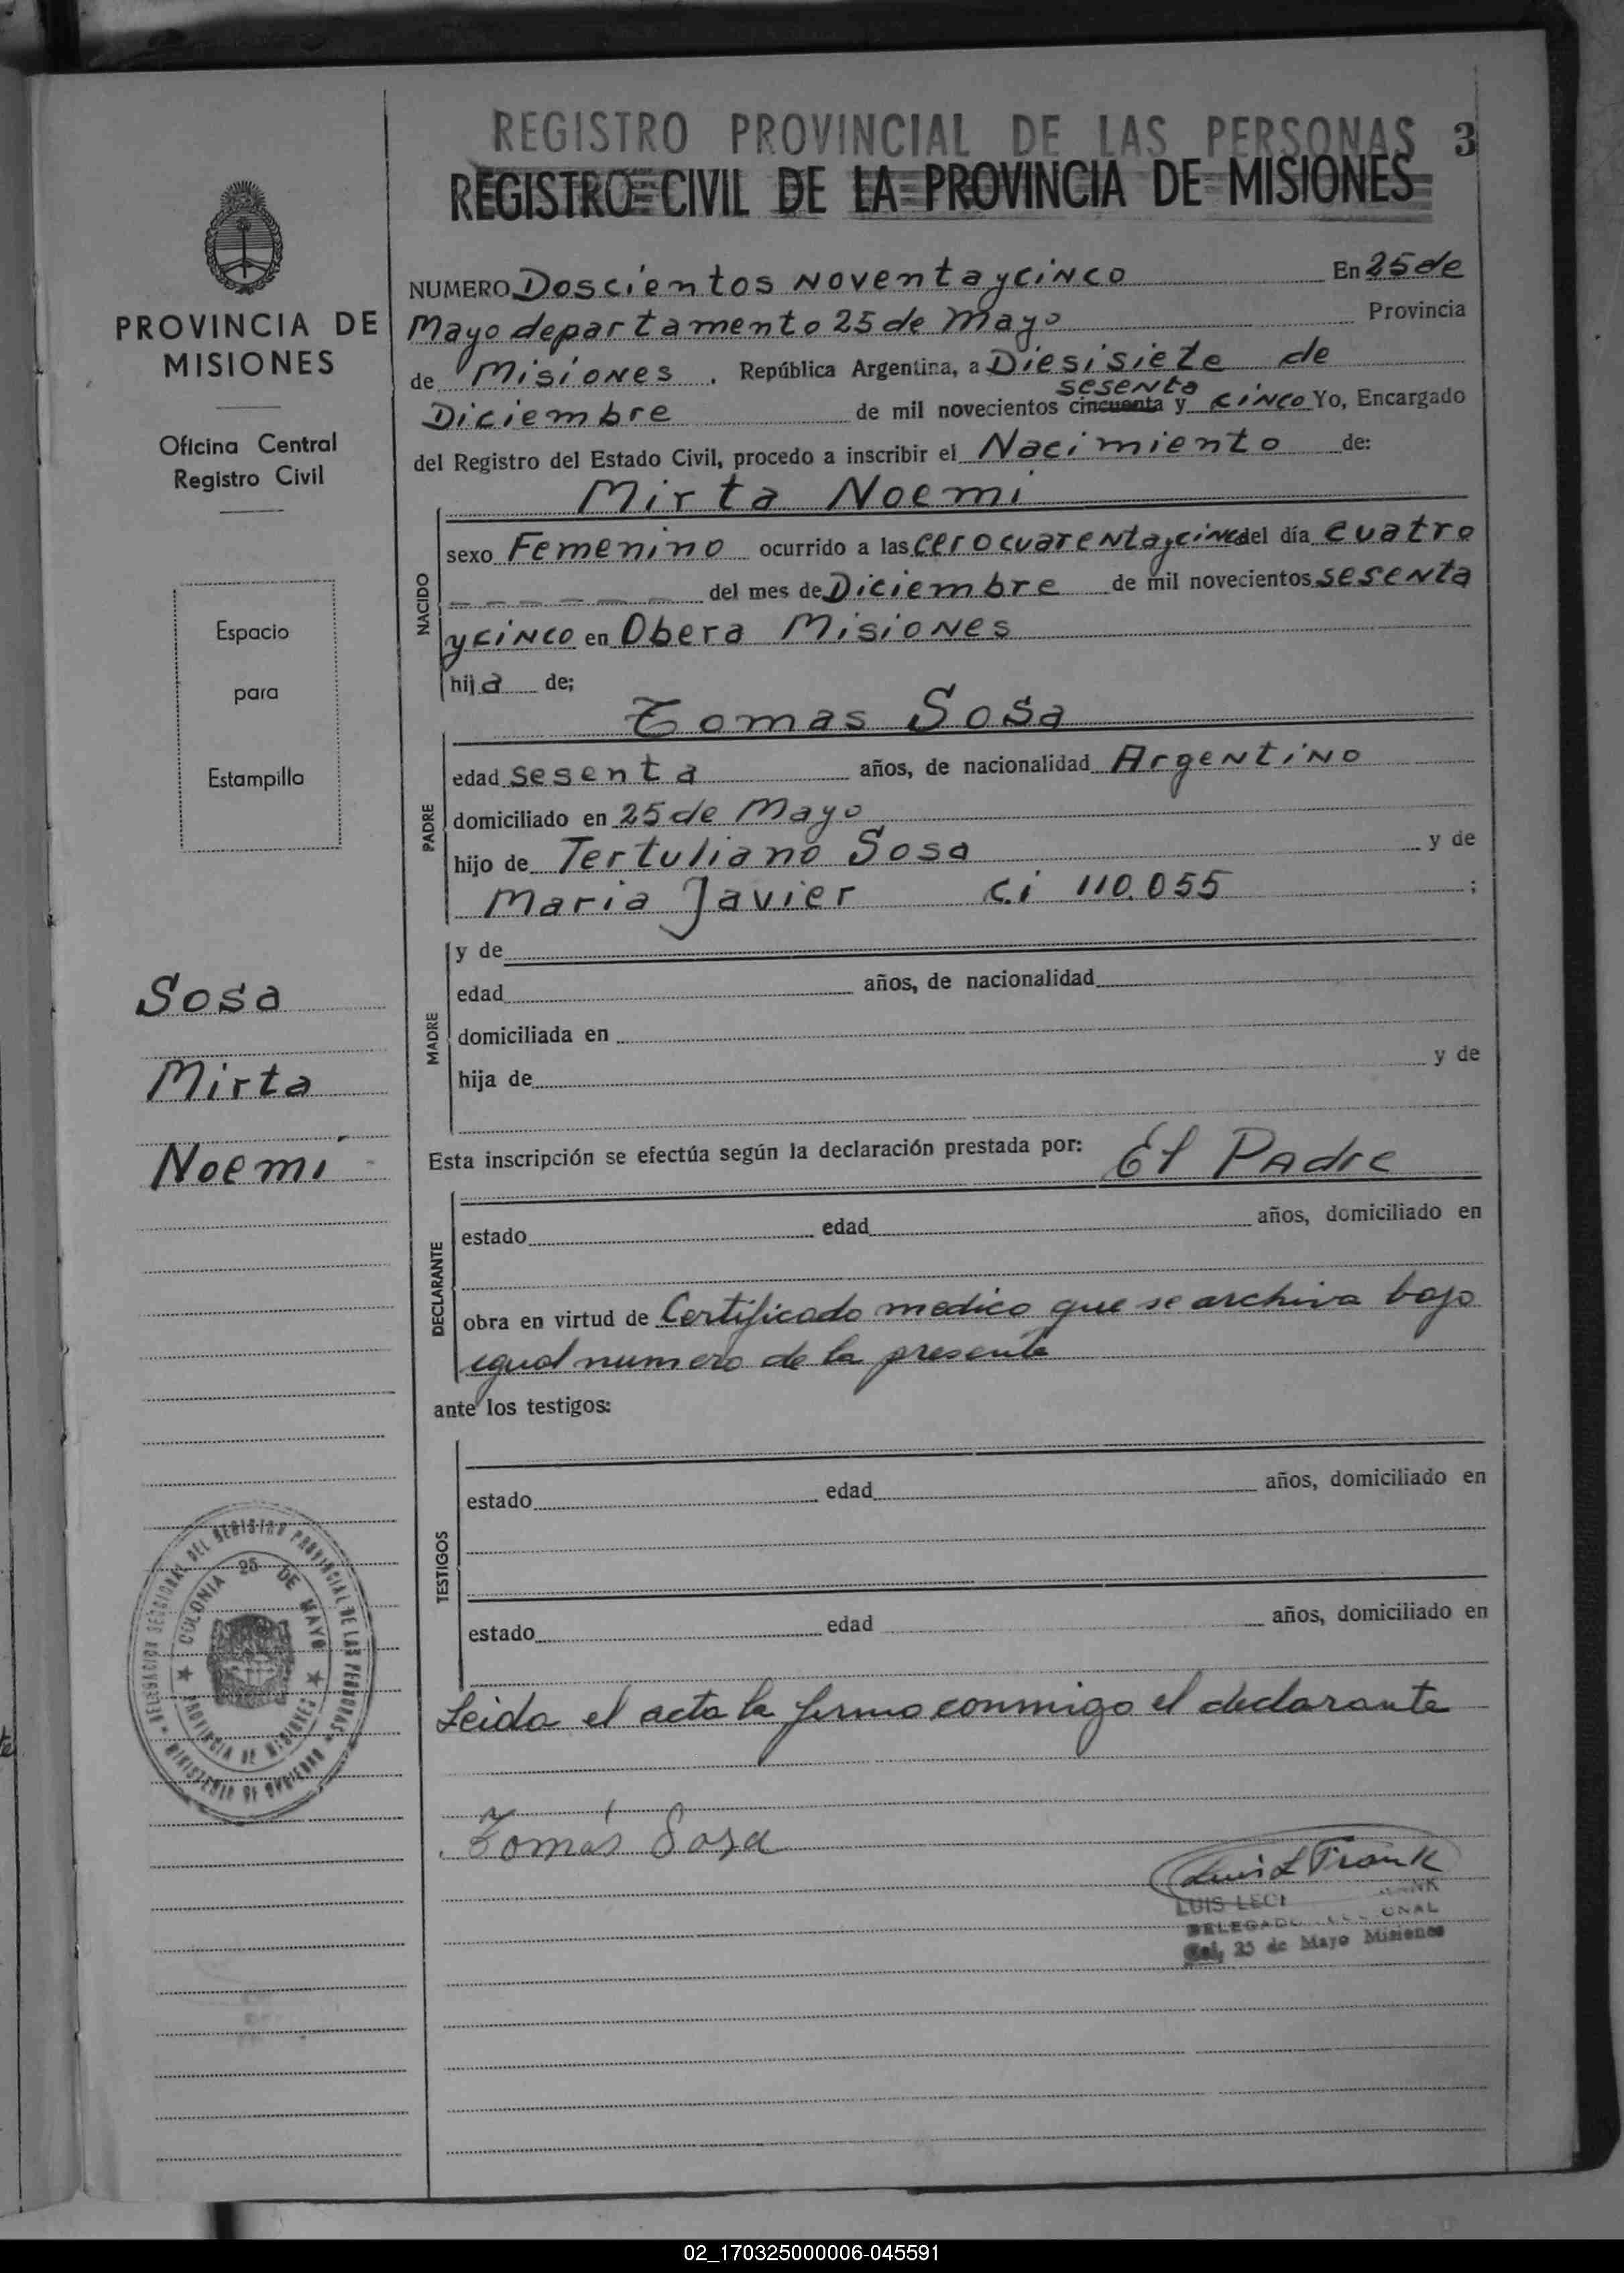 REGISTRO PROVINCIAL DE LAS PERSONAS 3
REGISTRO CIVIL DE LA PROVINCIA DE MISIONES
PROVINCIA DE
MISIONES
Oficina Central
Registro Civil
Espacio
para
Estampilla
Sosa
Mirta
Noemi
NUMERO Doscientos Noventa y cinco En 25 de
Mayo departamento 25 de Mayo Provincia
de Misiones, República Argentina, a Diesisiete de
sesenta
Diciembre de mil novecientos cincuenta y cinco Yo, Encargado
del Registro del Estado Civil, procedo a inscribir el Nacimiento de:
Mirta Noemi
NACIDO
sexo Femenino ocurrido a las cero cuarenta y cinco del día cuatro
del mes de Diciembre de mil novecientos sesenta
y cinco en Obera Misiones
hija de;
Tomas Sosa
PADRE
edad sesenta años, de nacionalidad Argentino
domiciliado en 25 de Mayo
hijo de Tertuliano Sosa y de
Maria Javier C.i 110.055 ;
MADRE
y de
edad años, de nacionalidad
domiciliada en
hija de y de
Esta inscripción se efectúa según la declaración prestada por: El Padre
DECLARANTE
estado edad años, domiciliado en
obra en virtud de Certificado medico que se archiva bajo
igual numero de la presente
ante los testigos:
TESTIGOS
estado edad años, domiciliado en
estado edad años, domiciliado en
Leida el acta la firma conmigo el declarante
Tomás Sosa
Luis L Frank
LUIS
25 de Mayo Misiones
DELEGACION SECCIONAL DEL REGISTRO PROVINCIAL DE LAS PERSONAS
MINISTERIO DE GOBIERNO
COLONIA 25 DE MAYO
PROVINCIA DE MISIONES
02_170325000006-045591